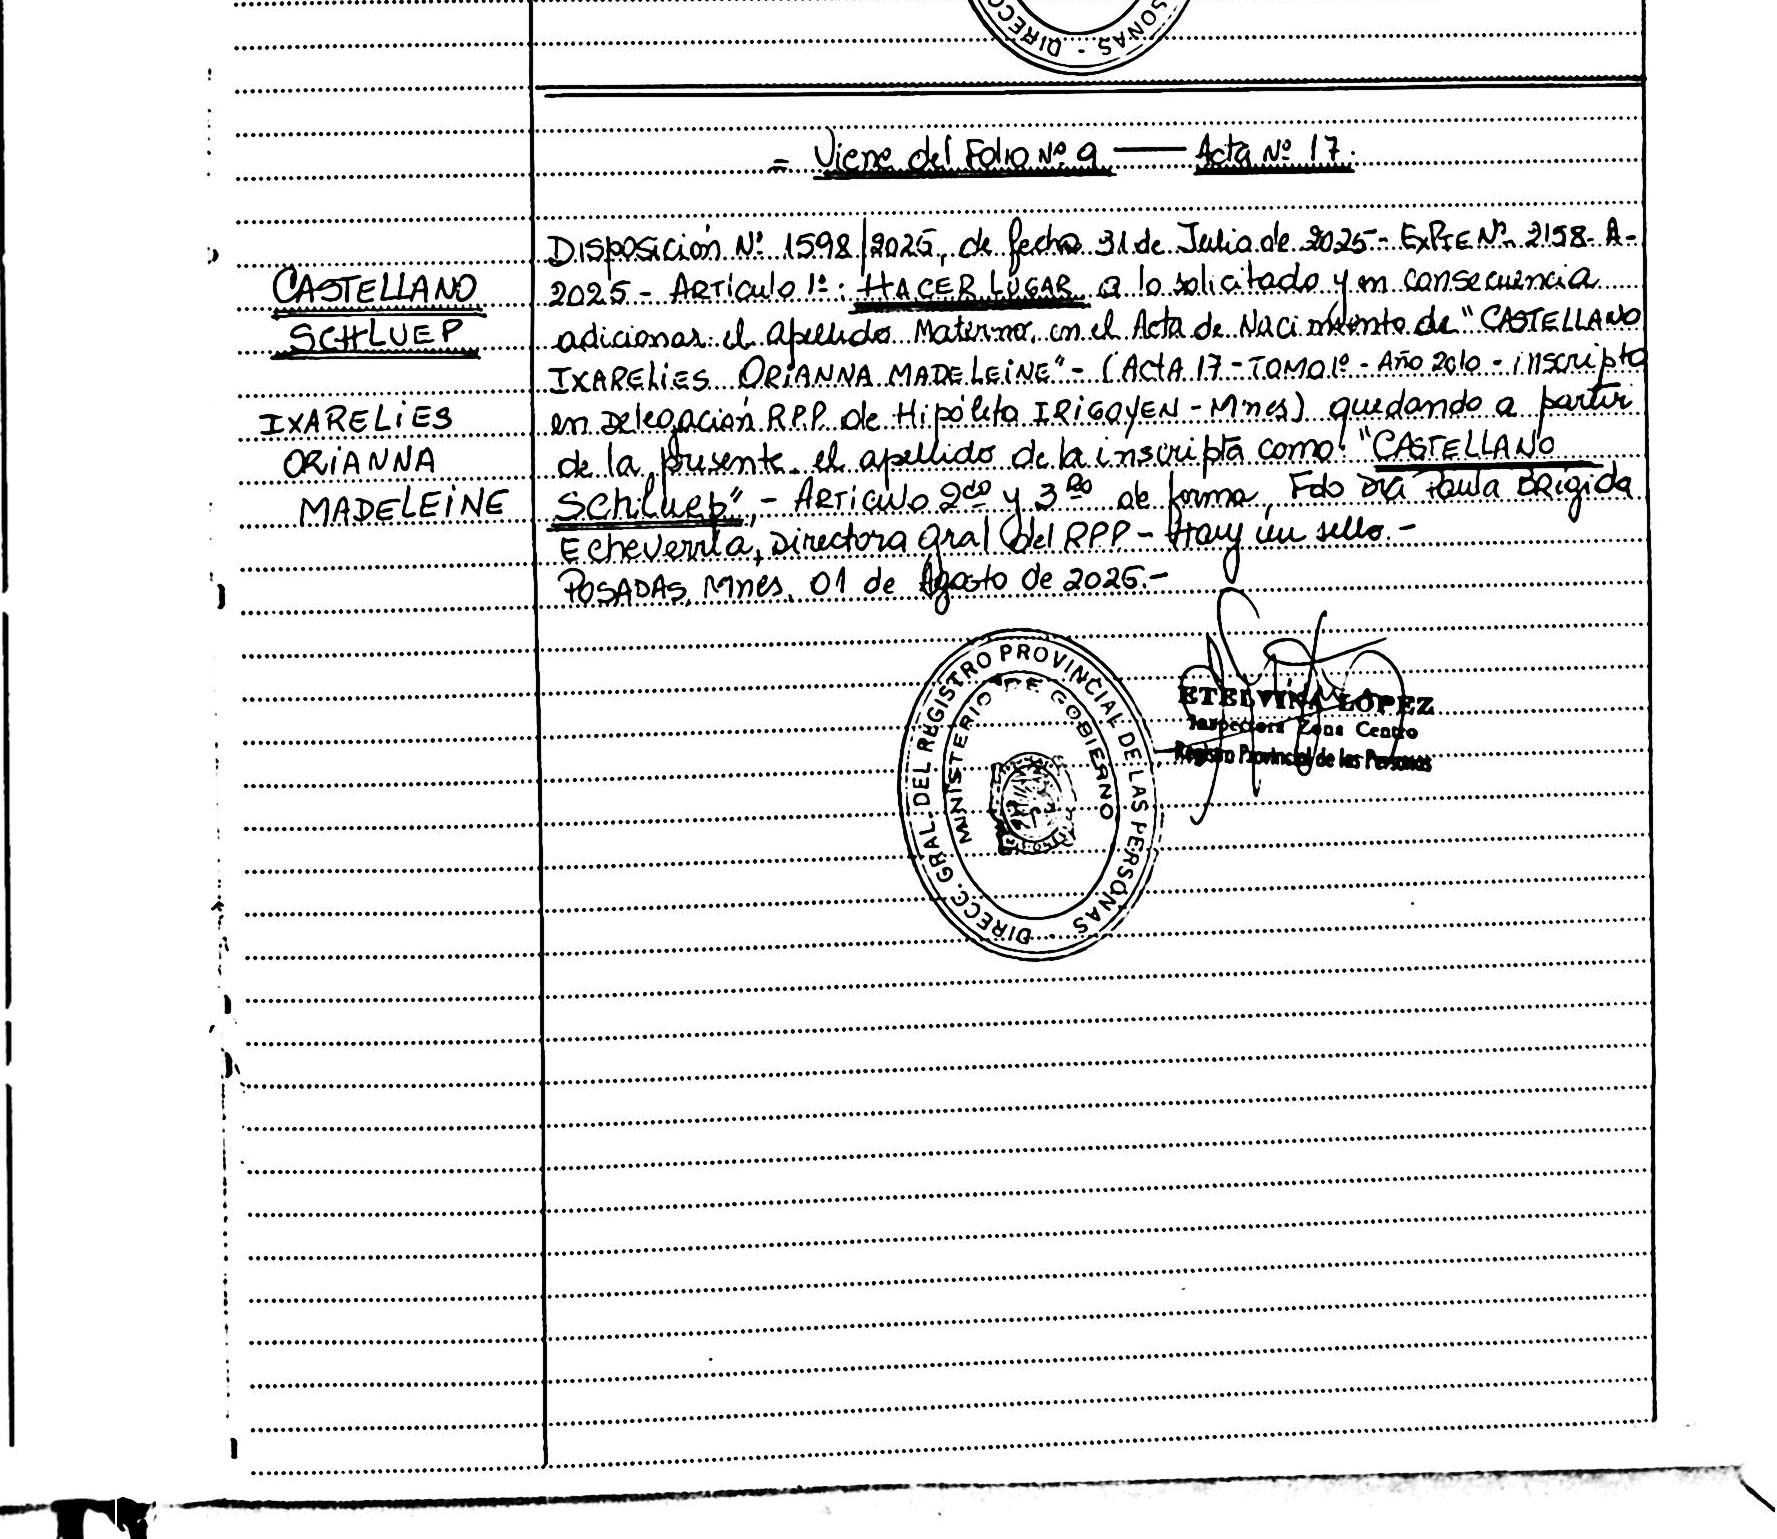 SONAS - DIRECC
= Viene del Folio Nº 9 — Acta Nº 17.
CASTELLANO
SCHLUEP
IXARELIES
ORIANNA
MADELEINE
Disposición Nº 1598/2025, de fecha 31 de Julio de 2025 - EXPTE Nº 2158-A-
2025 - Artículo 1º: HACER LUGAR a lo solicitado y en consecuencia
adicionar el apellido Materno, en el Acta de Nacimiento de "CASTELLANO
IXARELIES ORIANNA MADELEINE" - (ACTA 17 - TOMO 1º - Año 2010 - inscripta
en Delegación R.P.P. de Hipólito IRIGOYEN - Mnes) quedando a partir
de la presente el apellido de la inscripta como "CASTELLANO
SCHLUEP", - Artículo 2do y 3ro de forma, Fdo Dra Paula Brígida
Echeverría, Directora Gral del RPP - Hay un sello.-
POSADAS, Mnes, 01 de Agosto de 2025.-
DIRECC. GRAL. DEL REGISTRO PROVINCIAL DE LAS PERSONAS
MINISTERIO DE GOBIERNO
ETELVINA LOPEZ
Inspectora Zona Centro
Registro Provincial de las Personas